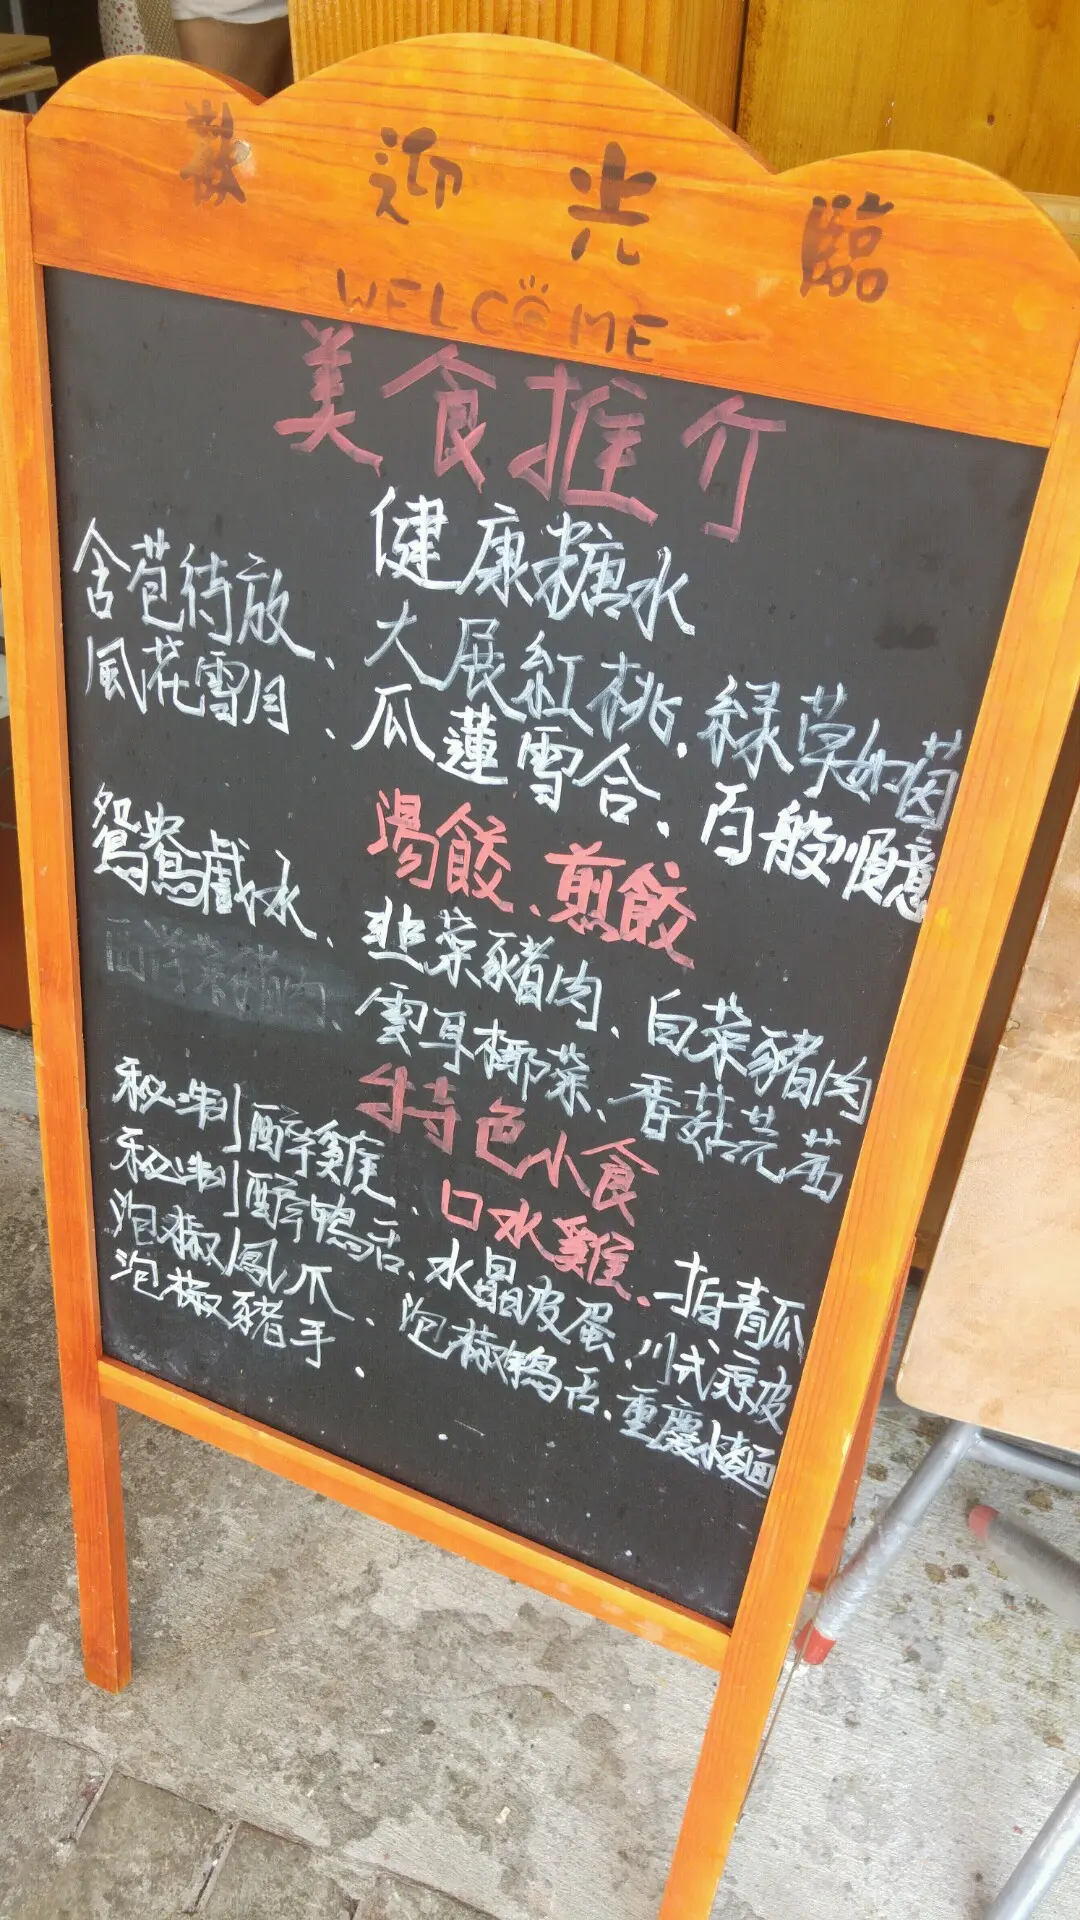 歡迎光臨
WELCOME
美食推介
健康糖水
含苞待放、大展紅桃、綠草如茵
風花雪月、瓜蓮雪合、百般順意
鴛鴦戲水
湯餃、煎餃
韭菜豬肉、白菜豬肉
西洋菜豬肉、雲耳椰菜、香菇芫茜
特色小食
秘制醉雞、口水雞、拍青瓜
秘制醉鴨舌、水晶皮蛋、川式涼皮
泡椒鳳爪、泡椒鴨舌、重慶小麵
泡椒豬手、